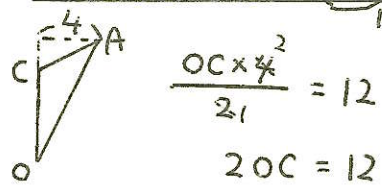 4
A
C
O
OC × 4̸ ² / 2̸ ₁ = 12
2OC = 12